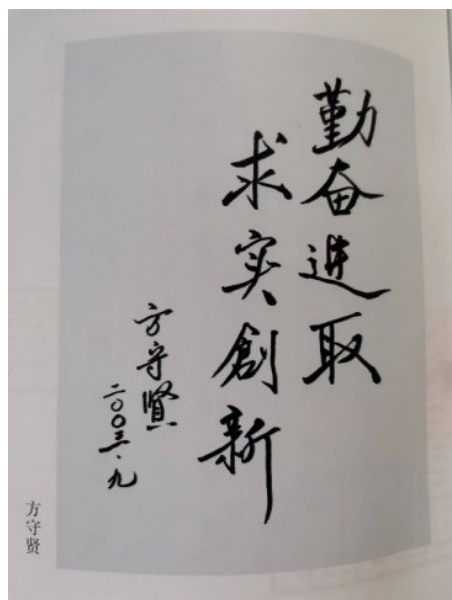 勤奋進取
求实創新
方守贤
二〇〇三·九
方守贤